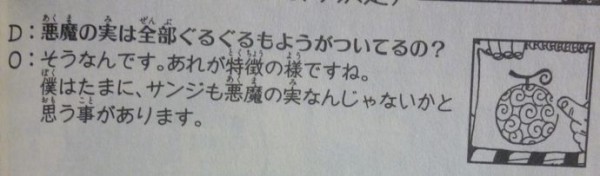 D：悪魔の実は全部ぐるぐるもようがついてるの？
O：そうなんです。あれが特徴の様ですね。
僕はたまに、サンジも悪魔の実なんじゃないかと
思う事があります。